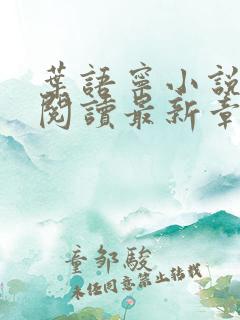 葉語寧小說
閱讀最新章
童邹駿
未任同意禁止轉載